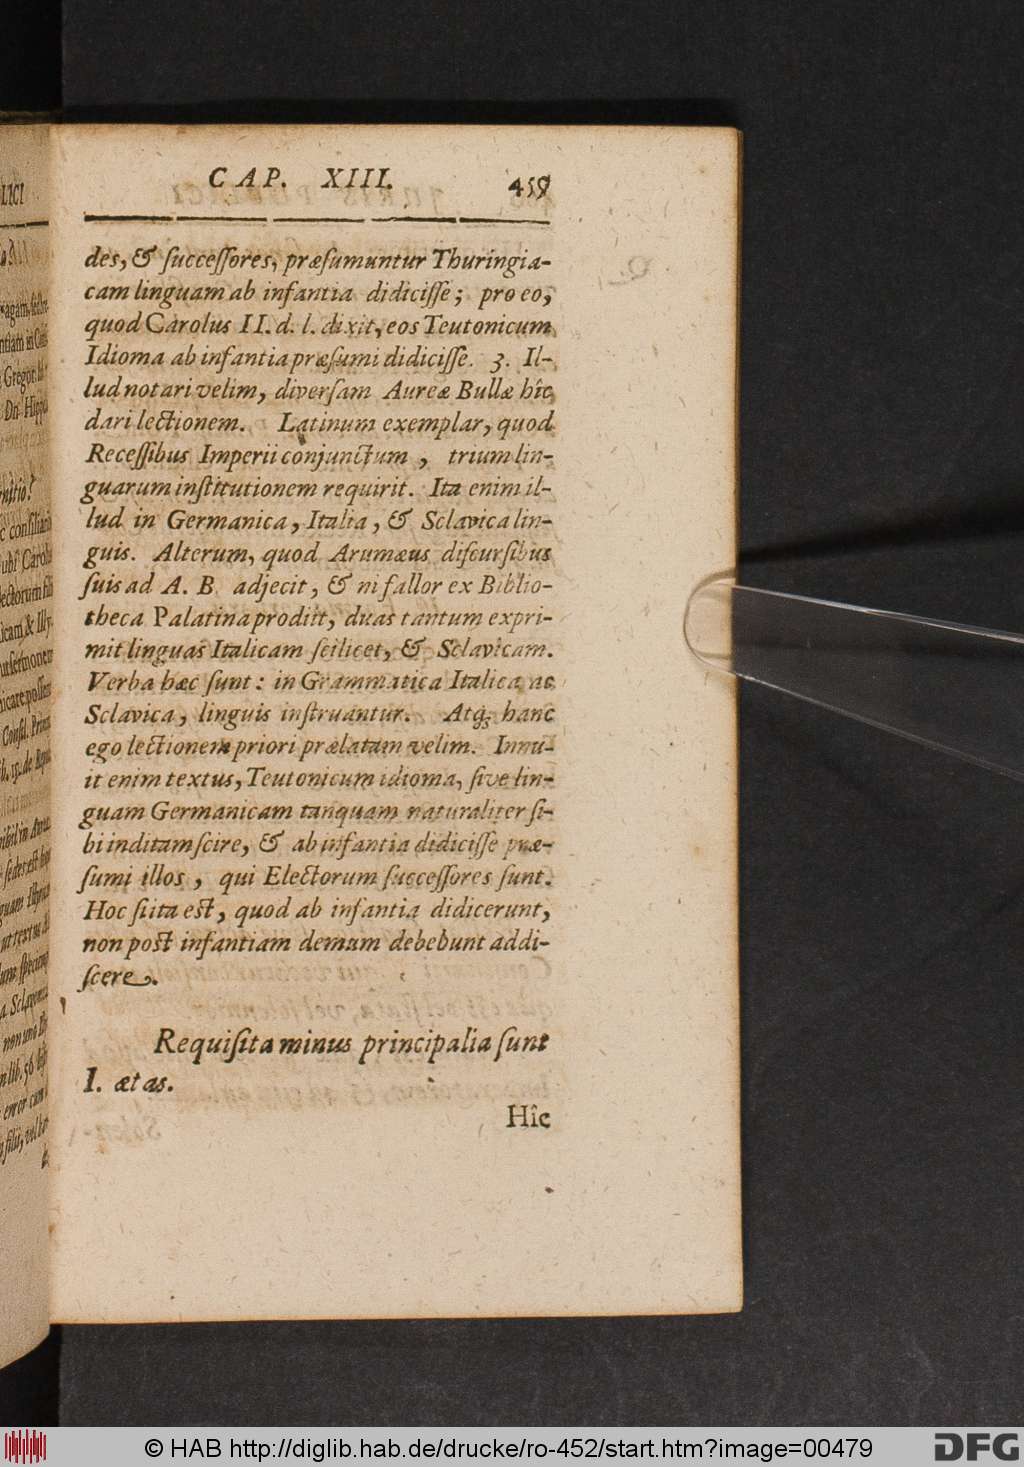 CAP. XIII. 459
des, & ſucceſſores, præſumuntur Thuringia-
cam linguam ab infantia didiciſſe; pro eo,
quod Carolus II. d. l. dixit, eos Teutonicum
Idioma ab infantia præſumi didiciſſe. 3. Il-
lud notari velim, diverſam Aureæ Bullæ hîc
dari lectionem. Latinum exemplar, quod
Receſſibus Imperii conjunctum, trium lin-
guarum inſtitutionem requirit. Ita enim il-
lud in Germanica, Italia, & Sclavica lin-
guis. Alterum, quod Arumæus diſcurſibus
ſuis ad A. B. adjecit, & ni fallor ex Biblio-
theca Palatina prodiit, duas tantum expri-
mit linguas Italicam ſcilicet, & Sclavicam.
Verba hæc ſunt: in Grammatica Italica ac
Sclavica, linguis inſtruantur. Atq; hanc
ego lectionem priori prælatam velim. Innu-
it enim textus, Teutonicum idioma, ſive lin-
guam Germanicam tanquam naturaliter ſi-
bi inditam ſcire, & ab infantia didiciſſe præ-
ſumi illos, qui Electorum ſucceſſores ſunt.
Hoc ſi ita eſt, quod ab infantia didicerunt,
non poſt infantiam demum debebunt addi-
ſcere.
Requiſita minus principalia ſunt
I. ætas.
Hîc
© HAB http://diglib.hab.de/drucke/ro-452/start.htm?image=00479
DFG